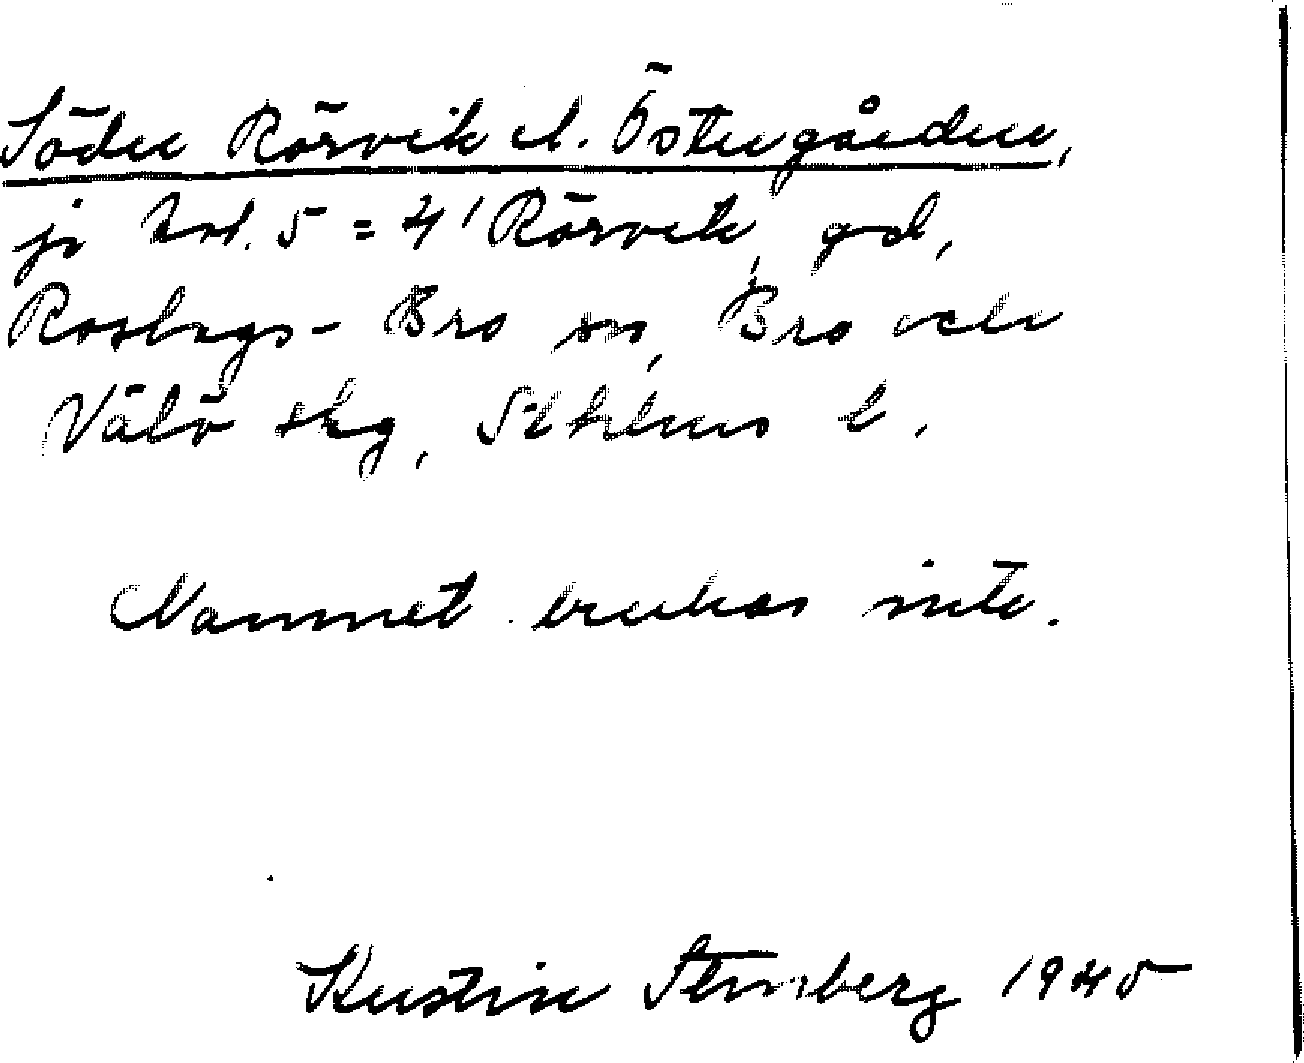 Söder Rörvik el. Östergården,
jr kol. 5 = 4' Rörvik, gd,
Roslags-Bro sn, Bro och
Vätö skg, Sthlms l.
Namnet brukas inte.
Kerstin Stenberg 1945